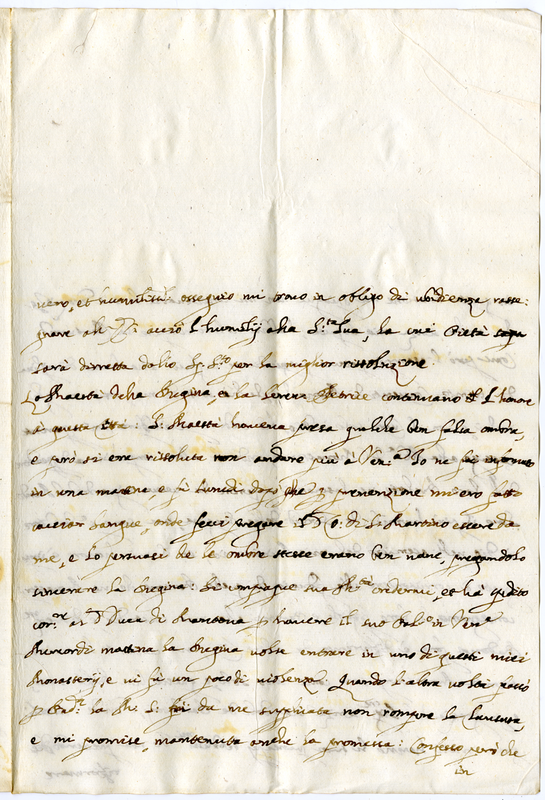 et humiliss. ossequio mi trovo in obligo di
acciò l'humilij alla S.tà Sua, la cui Pietà
sarà diretta dallo Sp. S.to per la miglior rissoluzione
La Maestà della Regina, e la continuano l'honore
à questa Città: S. Maestà haveva presa qualche ben falsa ombra,
e però si era rissoluta non andare più à Ven.a Io ne fui informato
in una mattina e fù Lunedi dopò che p prevenzione m'ero fatto
cacciar sangue, onde feci pregare il di S. Martino essere da
me, e lo persuasi che le ombre stesse erano ben vane, pregandolo
sincerare la Regina: Si compiaque sua M.tà credermi, et hà spedito
cor.re al Duca di Mantova p havere il suo in Ven.a
Mercordi mattina la Regina volse entrare in uno di questi miei
Monasterij, e vi fù un poco di violenza. Quando l'altra volta passò
p la M. S. fù da me supplicata non rompere la Clausura,
e mi promise, mantenuta anche la promessa: Confesso però che
in